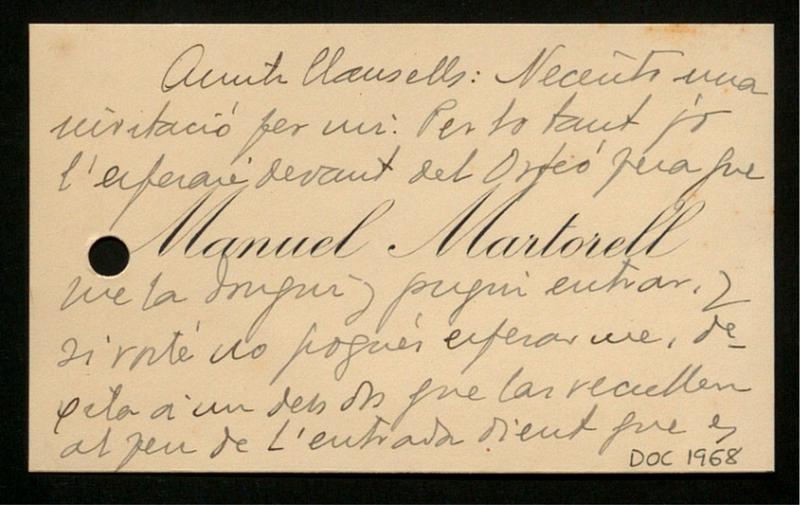 Amich Clausells: Necesito una
invitació per mi. Per lo tant jo
l'esperaré devant del Orfeó pera que
Manuel Martorell
me la dongui y pugui entrar. y
si vosté no pogués esperarme, de-
a un dels dos que las recullen
al peu de l'entrada dient que es
DOC 1968